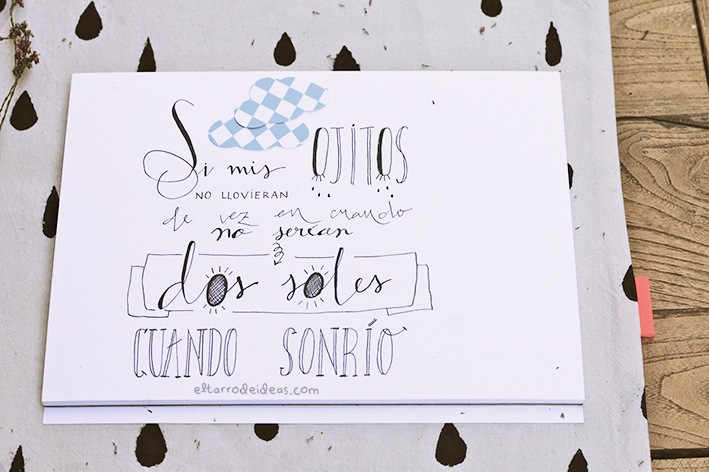 Si mis OJITOS
NO LLOVIERAN
de vez en cuando
no serían
dos soles
CUANDO SONRÍO
eltarrodeideas.com